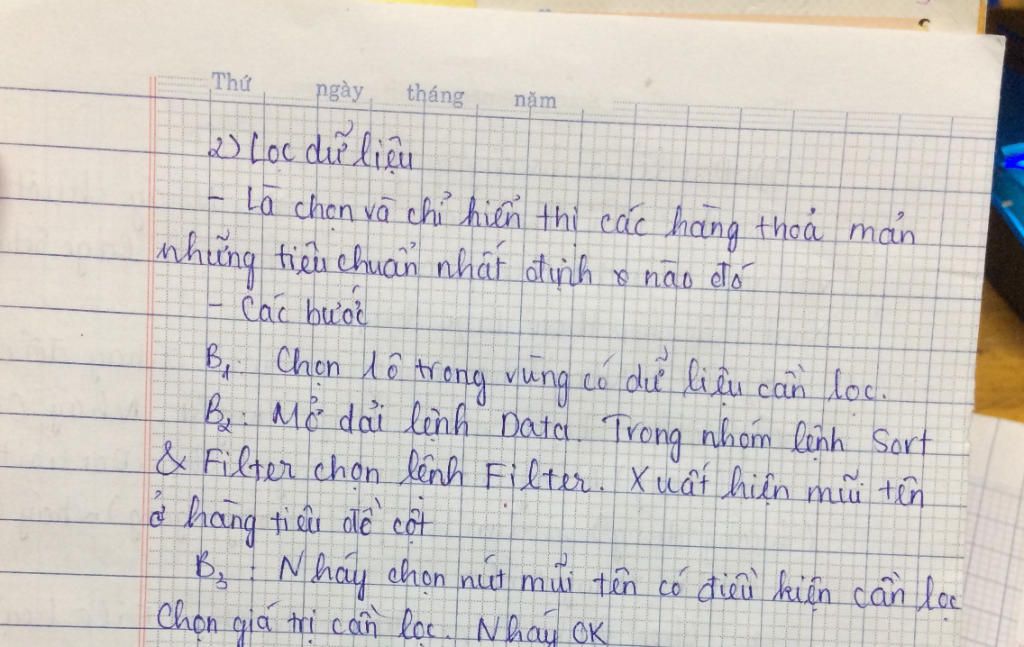 Thứ ngày tháng năm
2) Lọc dữ liệu
- Là chọn và chỉ hiển thị các hàng thoả mản
những tiêu chuẩn nhất định nào đó
- Các bước
B1: Chọn 1 ô trong vùng có dữ liệu cần lọc.
B2: Mở dải lệnh Data. Trong nhóm lệnh Sort
& Filter chọn lệnh Filter. Xuất hiện mũi tên
ở hàng tiêu đề cột
B3: Nháy chọn nút mũi tên có điều kiện cần lọc
Chọn giá trị cần lọc. Nháy OK